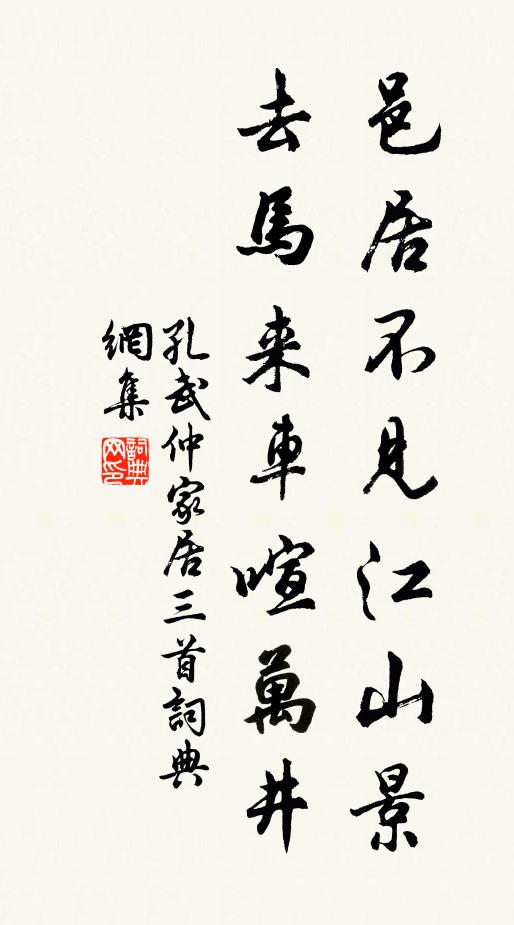 邑居不見江山景
去馬来車喧萬井
孔武仲家居三首詞典
網集
詞典
网印